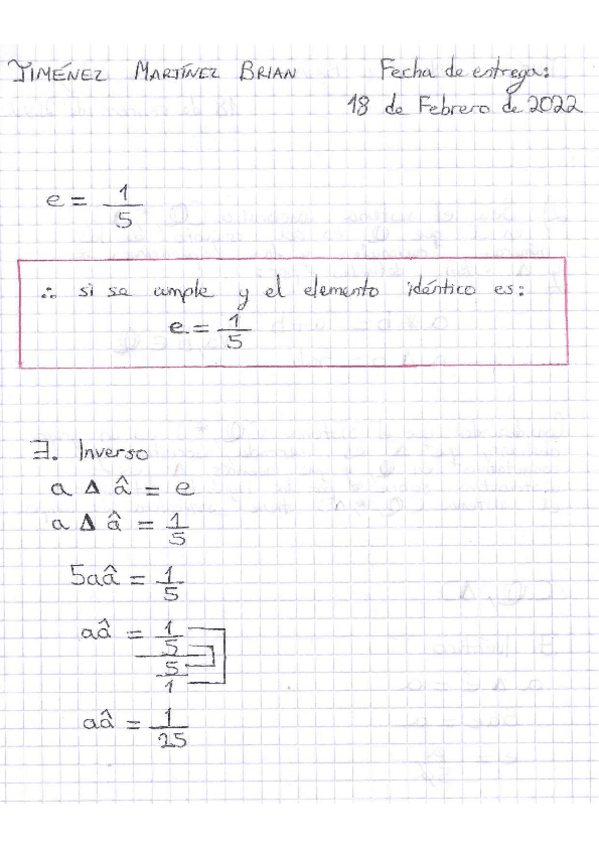 JIMÉNEZ MARTÍNEZ BRIAN Fecha de entrega:
18 de Febrero de 2022
e = 1/5
∴ si se cumple y el elemento idéntico es:
e = 1/5
∃. Inverso
a Δ â = e
a Δ â = 1/5
5aâ = 1/5
aâ = 1/5 / 5/1
aâ = 1/25